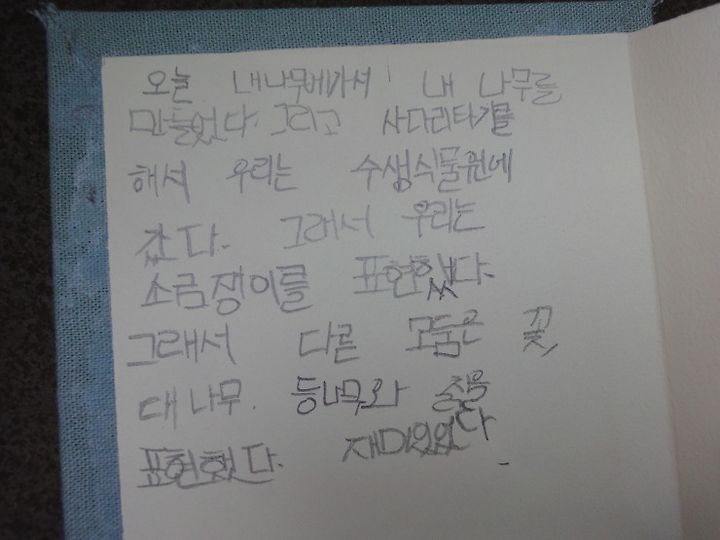 오늘 내나무에가서 내 나무를
만들었다. 그리고 사다리타기를
해서 우리는 수생식물원에
갔다. 그래서 우리는
소금쟁이를 표현했다.
그래서 다른 모둠은 꽃,
대나무. 등나무와 칡을
표현했다. 재미있었다